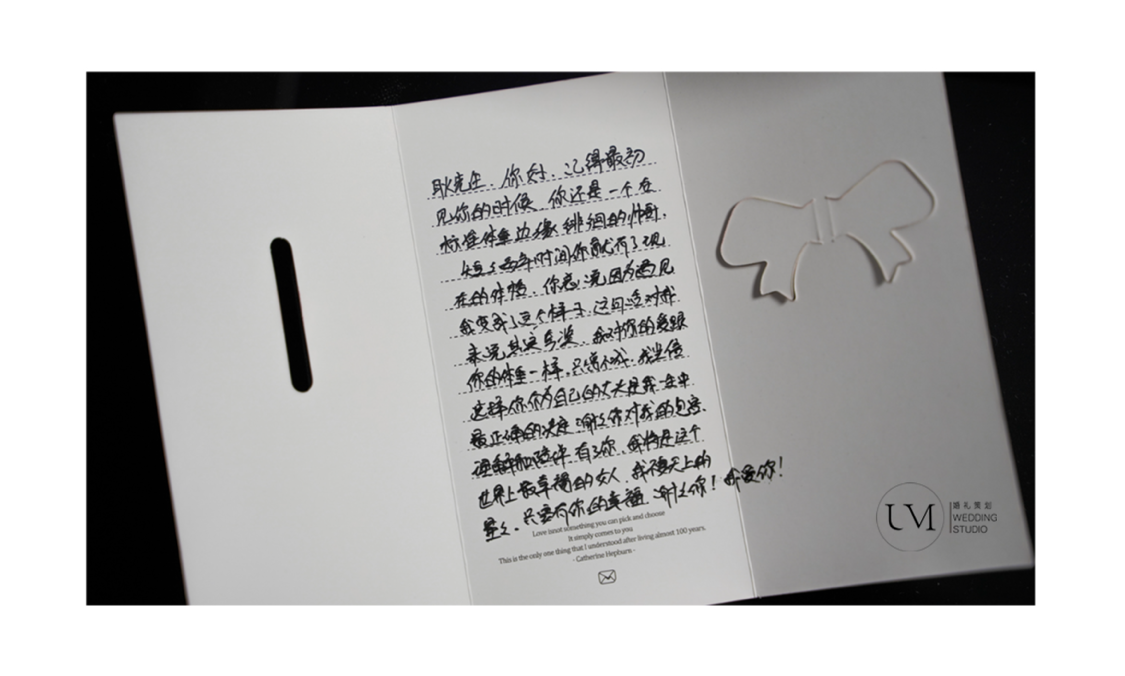 耿先生.你好.记得最初
见你的时候.你还是一个在
标准体重边缘徘徊的帅哥.
短短两年时间你就有了现
在的体态.你总说因为遇见
我变成了这个样子.这句话对我
来说其实与
你的体重一样.只增不减.我坚信
选择你作为自己的丈夫是我一生中
最正确的决定.谢谢你对我的包容.
理解和陪伴.有了你.我将是这个
世界上最幸福的女人.我不要天上的
星星.只要有你的幸福.谢谢你！我爱你！
Love isnot something you can pick and choose
It simply comes to you
This is the only one thing that I understood after living almost 100 years.
- Catherine Hepburn -
UM
婚礼策划
WEDDING
STUDIO